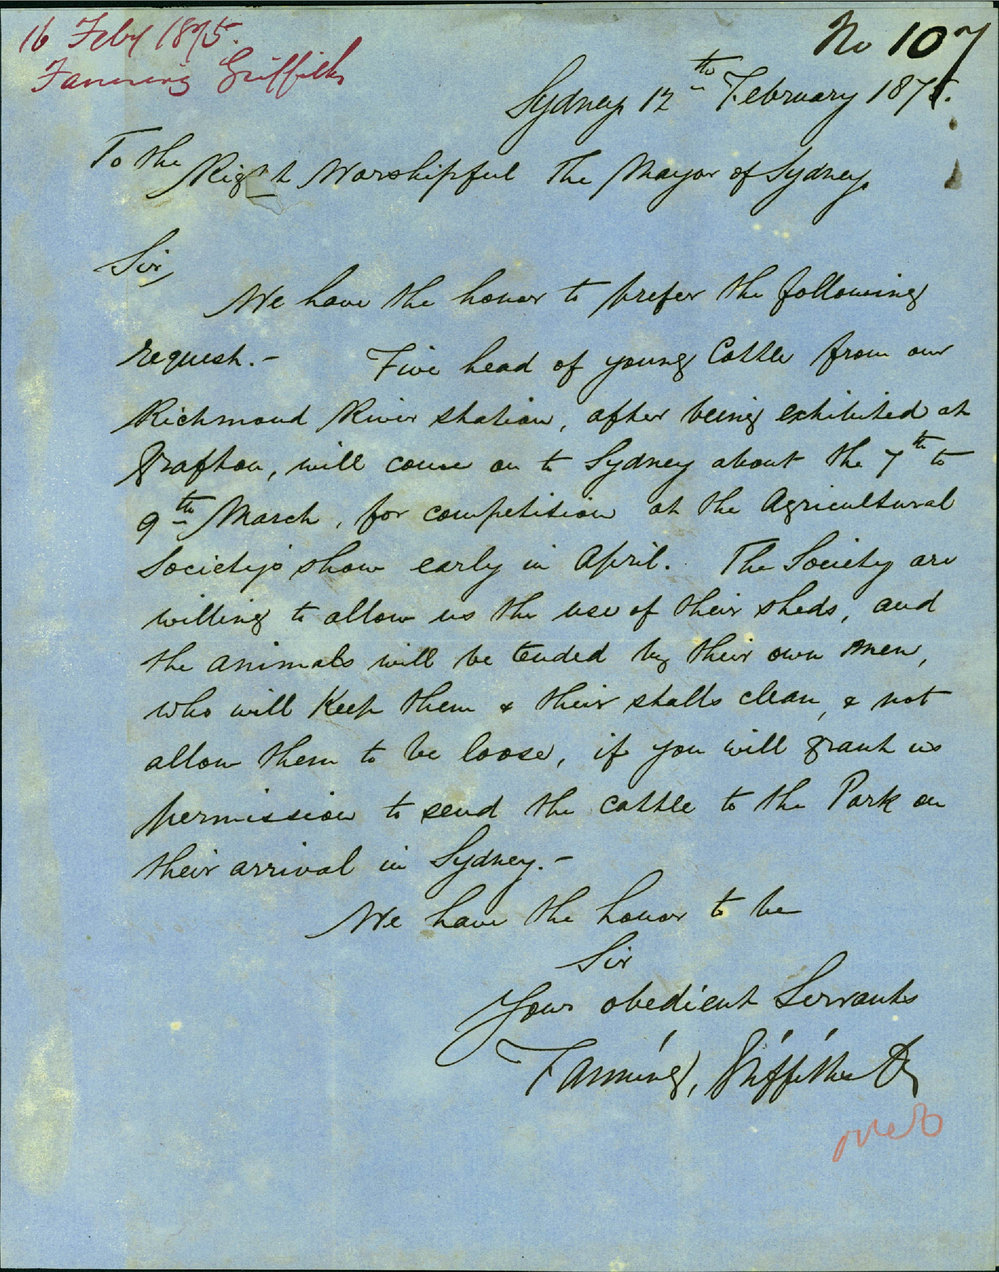 16 Feby 1875.
Fanning Griffiths
No 107
Sydney 12th February 1875.
To the Right Worshipful The Mayor of Sydney
Sir,
We have the honor to prefer the following
request. - Five head of young Cattle from our
Richmond River station, after being exhibited at
Grafton, will come on to Sydney about the 7th to
9th March, for competition at the Agricultural
Society's show early in April. The Society are
willing to allow us the use of their sheds, and
the animals will be tended by their own men,
who will keep them & their stalls clean, & not
allow them to be loose, if you will grant us
permission to send the cattle to the Park on
their arrival in Sydney. -
We have the honor to be
Sir
Your obedient Servants
Fanning, Griffiths & Co
over